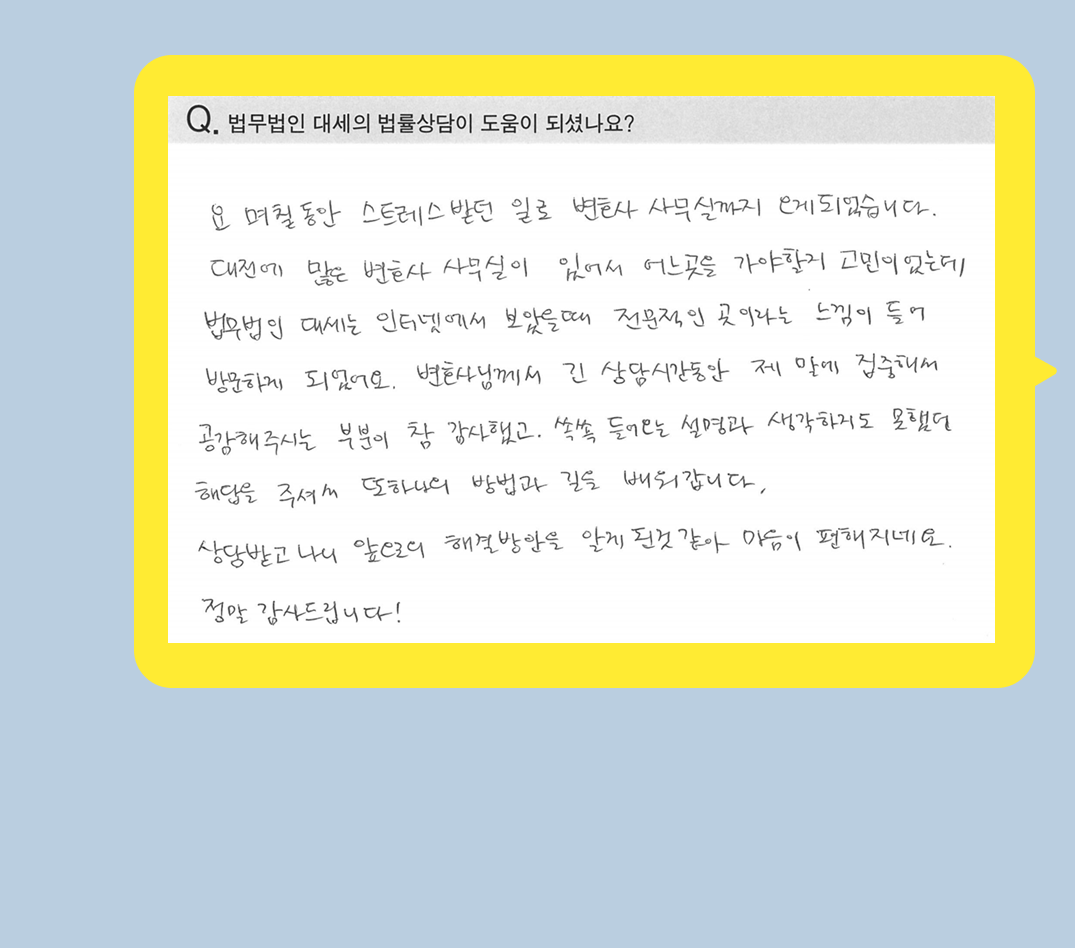 Q. 법무법인 대세의 법률상담이 도움이 되셨나요?
요 며칠동안 스트레스받던 일로 변호사 사무실까지 오게되었습니다.
대전에 많은 변호사 사무실이 있어서 어느곳을 가야할지 고민이었는데
법무법인 대세는 인터넷에서 보았을때 전문적인 곳이라는 느낌이 들어
방문하게 되었어요. 변호사님께서 긴 상담시간동안 제 말에 집중해서
공감해주시는 부분이 참 감사했고. 쏙쏙 들어오는 설명과 생각하지도 못했던
해답을 주셔서 또하나의 방법과 길을 배워갑니다.
상담받고 나니 앞으로의 해결방안을 알게 된것 같아 마음이 편해지네요.
정말 감사드립니다!